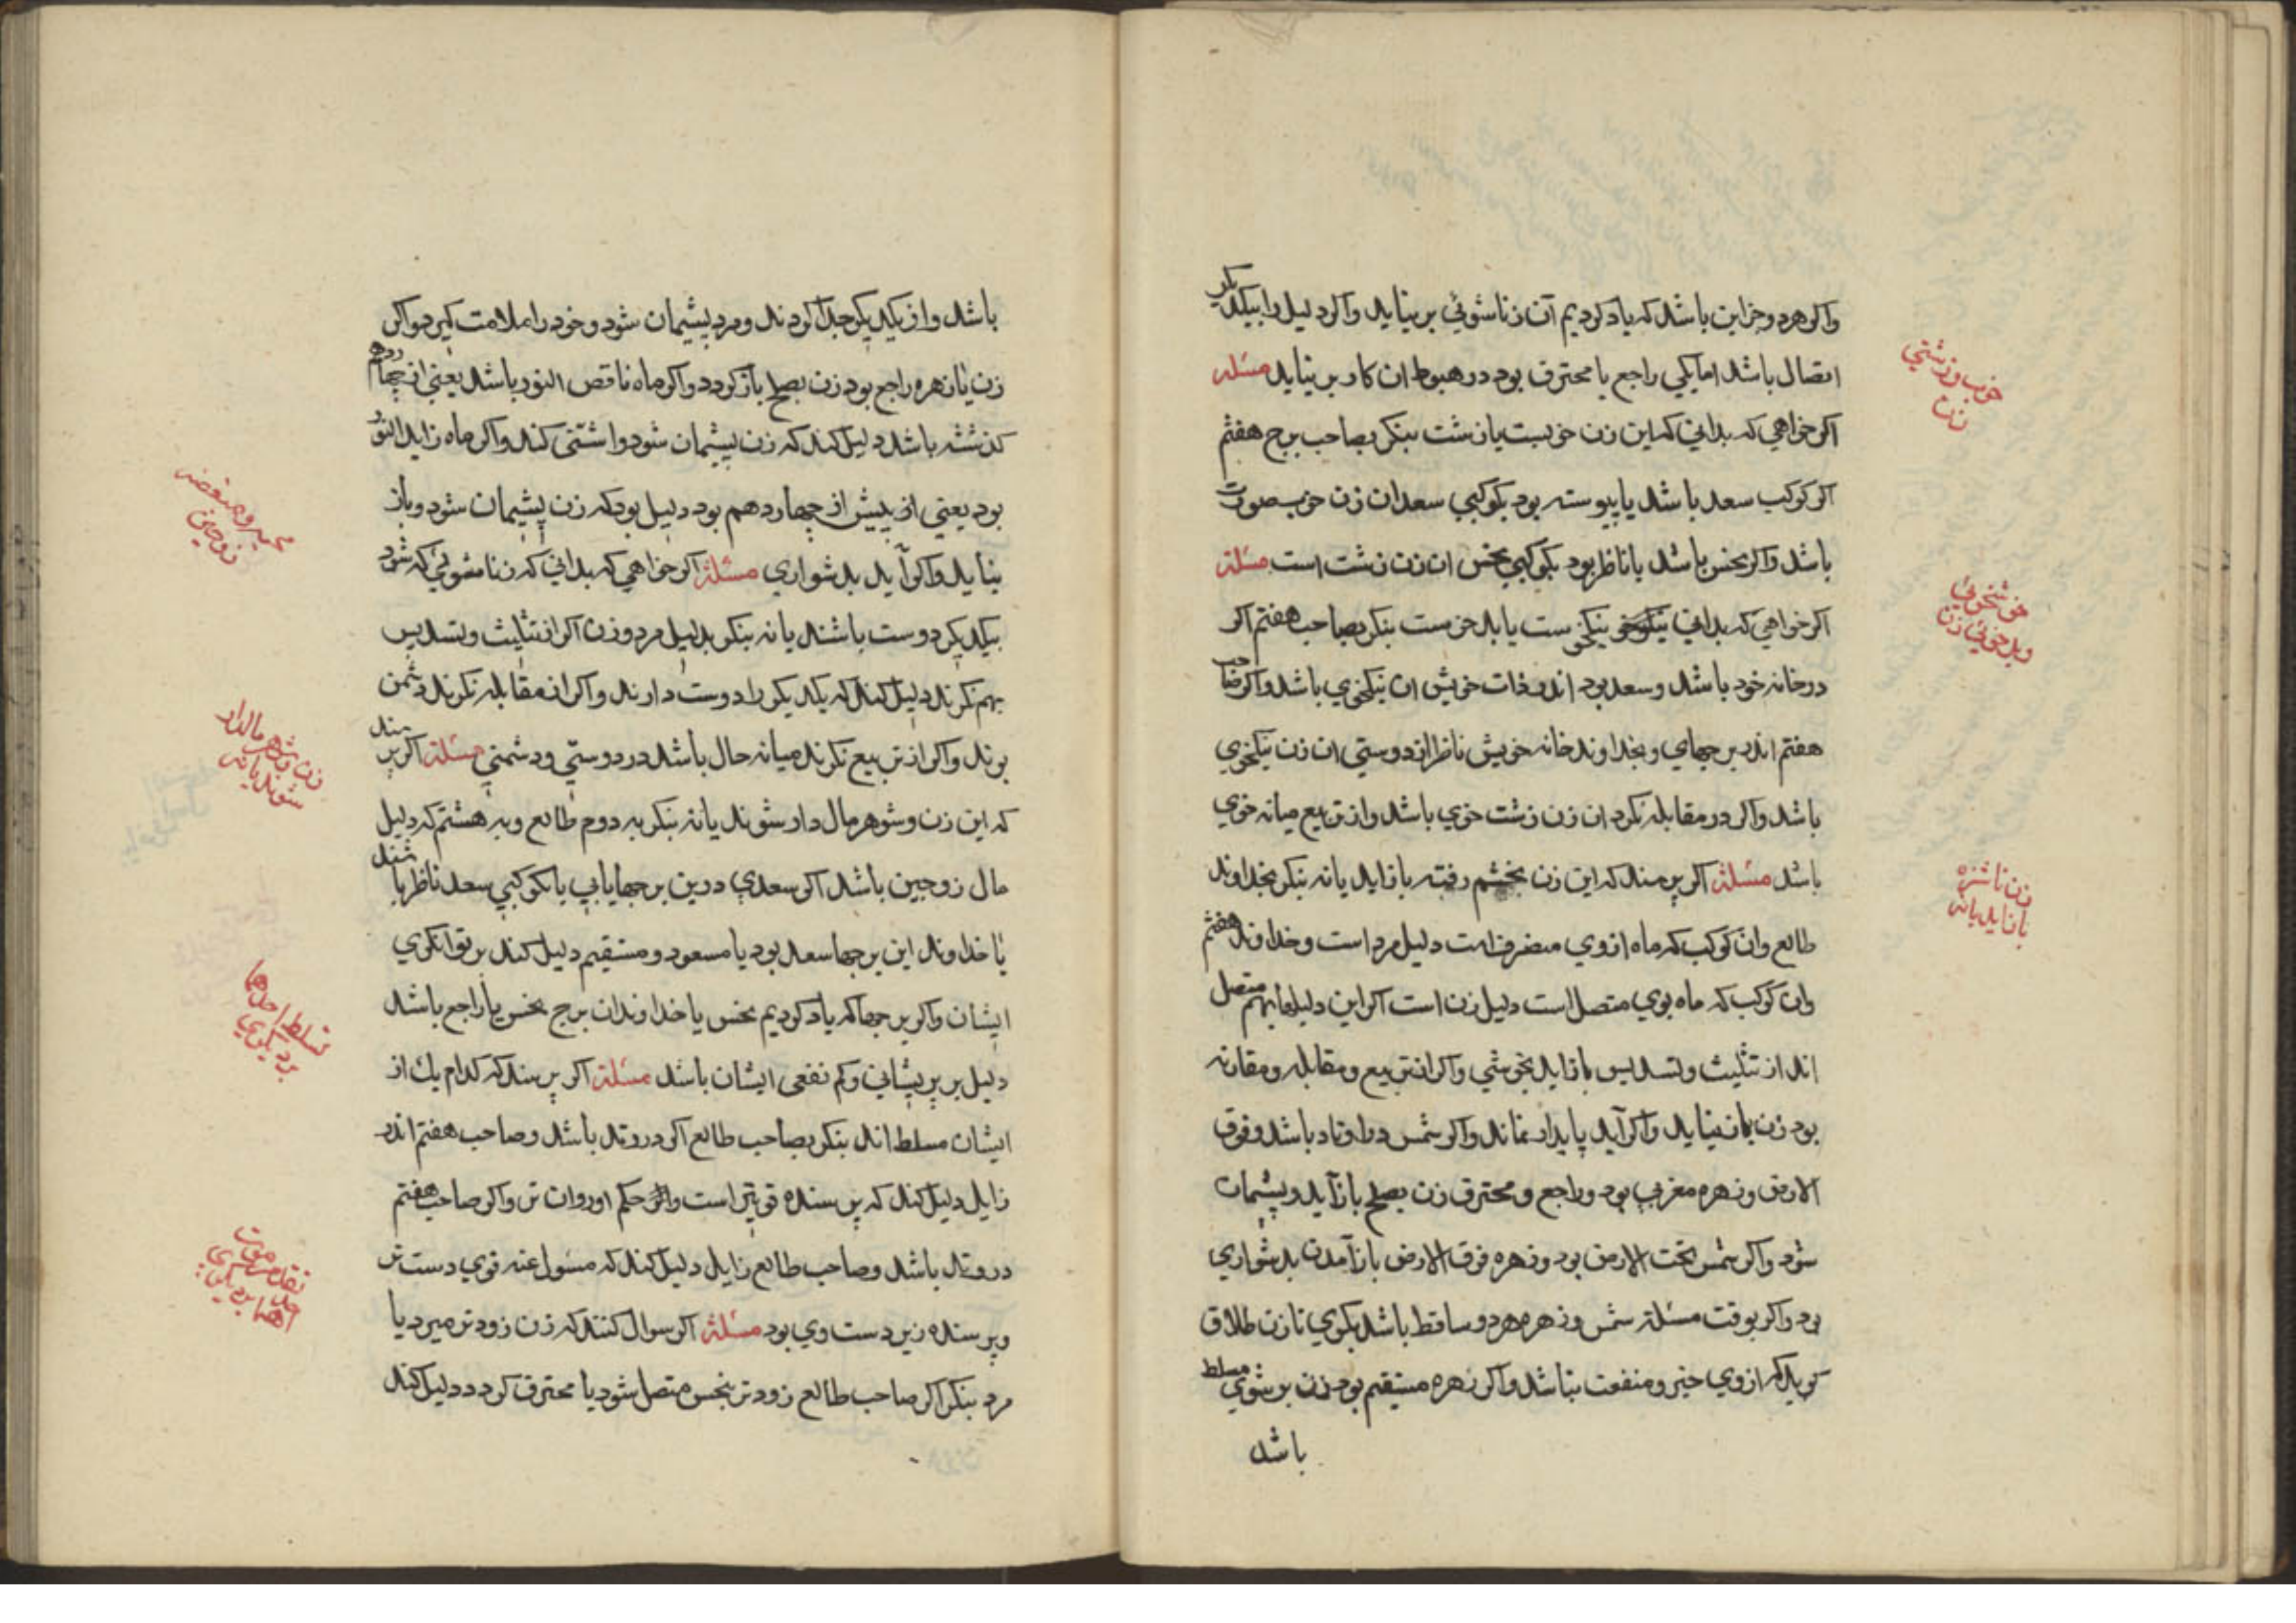 واکر هر دو جز این باشد که یاد کردیم آن زناشوئی بر نیاید واکر دلیل را بیکدیکر
اتصال باشد اما یکی راجع یا محترق بود در هبوط ان کار بر نیاید مسئله
اکر خواهی که بدانی که این زن خوبست یا زشت بنکر بصاحب برج هفتم
اکر کوکب سعد باشد یا پیوسته بود بکوکبی سعد ان زن خوب صورت
باشد واکر نحس باشد یا ناظر بود بکوکبی نحس ان زن زشت است مسئلة
اکر خواهی که بدانی نیکخوست یا بدخوست بنکر بصاحب هفتم اکر
در خانه خود باشد وسعد بود اندر ذات خویش ان نیکخوی باشد واکر صاحب
هفتم اندر برجهای وبخداوند خانه خویش ناظر از دوستی ان زن نیکخوی
باشد واکر در مقابله نکرد ان زن زشت خوی باشد واز تربیع میانه خوی
باشد مسئلة اکر پرسند که این زن بخشم رفته باز اید یا نه بنکر بخداوند
طالع وان کوکب که ماه ازوی منصرفست دلیل مرد است وخداوند هفتم
وان کوکب که ماه بوی متصل است دلیل زن است اکر این دلیلها بهم متصل
اند از تثلیث وتسدیس باز اید بخوشی واکر از تربیع ومقابله ومقارنه
بود زن باز نیاید واکر آید پایدار نماند واکر شمس در اوتاد باشد وفوق
الارض وزهره مغربی بود وراجع ومحترق زن بصلح باز آید وپشیمان
شود واکر شمس تحت الارض بود وزهره فوق الارض باز آمدن بدشواری
بود واکر بوقت مسئلة شمس وزهره هر دو ساقط باشد بکوی تا زن طلاق
کوید که ازوی خیر ومنفعت نباشد واکر زهره مستقیم بود زن بر شوی مسلط
باشد
خوب وزشتی
زن
خوشخوئی
وبدخوئی زن
زن ناشزه
باز اید یا نه
باشد واز یکدیکر جدا کردند ومرد پشیمان شود وخود را ملامت کیرد واکر
زن یا زهره راجع بود زن بصلح باز کردد واکر ماه ناقص النور باشد یعنی از چهاردهم
کذشته باشد دلیل کند که زن پشیمان شود واشتی کند واکر ماه زاید النور
بود یعنی از پیش از چهاردهم بود دلیل بود که زن پشیمان شود وباز
نیاید واکر آید بدشواری مسئلة اکر خواهی که بدانی که زناشوئی که شود
بیکدیکر دوست باشند یا نه بنکر بدلیل مرد وزن اکر از تثلیث وتسدیس
بهم نکرند دلیل کند که یکدیکر را دوست دارند واکر از مقابله نکرند دشمن
بوند واکر از تربیع نکرند میانه حال باشد در دوستی ودشمنی مسئلة اکر پرسند
که این زن وشوهر مال دار شوند یا نه بنکر به دوم طالع وبه هشتم که دلیل
مال زوجین باشد اکر سعدی درین برجها یابی یا کوکبی سعد ناظر باشند
یا خداوند این برجها سعد بود یا مسعود ومستقیم دلیل کند بر توانکری
ایشان واکر برجها که یاد کردیم نحس یا خداوند ان برج نحس یا راجع باشد
دلیل بر پریشانی وکم نفعی ایشان باشد مسئلة اکر پرسند که کدام یك از
ایشان مسلط اند بنکر بصاحب طالع اکر در وتد باشد وصاحب هفتم اندر
زایل دلیل کند که پرسنده قوی تر است واثر حکم او روان تر واکر صاحب هفتم
در وتد باشد وصاحب طالع زایل دلیل کند که مسئول عنه قوی دست تر
وپرسنده زیر دست وی بود مسئلة اکر سوال کنند که زن زودتر میرد یا
مرد بنکر اکر صاحب طالع زودتر بنحس متصل شود یا محترق کردد دلیل کند
زوجین
زن وشوهر مالدار
شوند یا نه
تسلط احدهما
بر دیکری